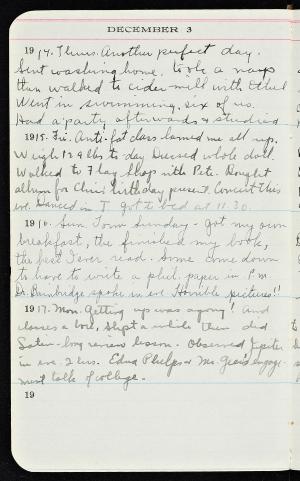 DECEMBER 3
1914. Thurs. Another perfect day.
Sent washing home, took a nap
then walked to cider mill with Ethel
Went in swimming, six of us.
Had a party afterwards & studied
1915. Fri. Anti-fat class lamed me all up.
Weigh 129 lbs to day Dressed whole doll.
Walked to 7 bay shop with Pete. Bought
album for Chris' birthday present. Concert this
eve. Danced in T got to bed at 11.30.
1916. Sun. Town Sunday - Got my own
breakfast, the finished my book,
the best I ever read. Some come down
to have to write a phil. paper in P.M.
Dr. Bainbridge spoke in eve Horrible pictures!!
1917. Mon. Getting up was agony! and
classes a bore, slept a while then did
Satan-long review lesson. Observed Jupiter
in eve 2 hrs. Edna Phelps & Mr. engage-
ment talk of college.
19